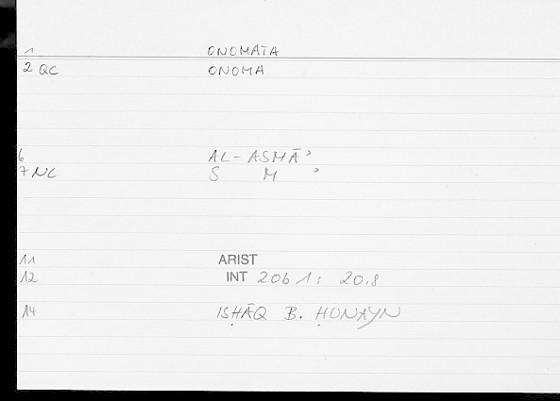 1 ONOMATA
2 QC ONOMA
6 AL-ASMĀʾ
7 NC S M ʾ
11 ARIST
12 INT 20b 1; 20.8
14 ISḤĀQ B. ḤUNAYN